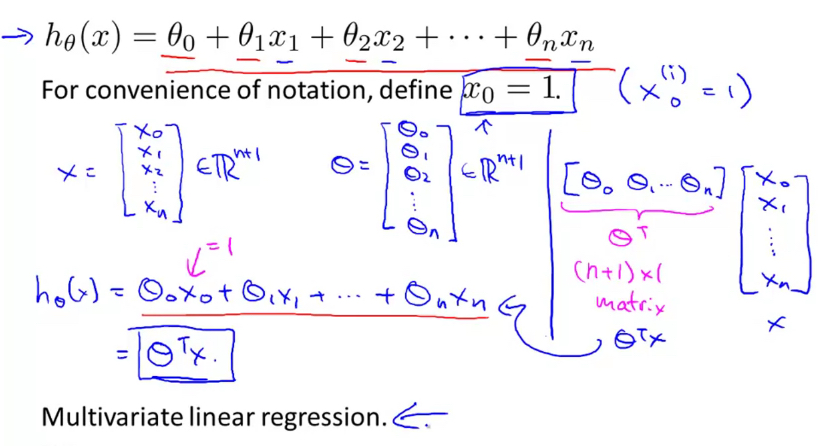 → hθ(x) = θ₀ + θ₁x₁ + θ₂x₂ + ⋯ + θₙxₙ
For convenience of notation, define x₀ = 1. (x₀⁽ⁱ⁾ = 1)
x = [x₀ x₁ x₂ ⋮ xₙ] ∈ ℝⁿ⁺¹ θ = [θ₀ θ₁ θ₂ ⋮ θₙ] ∈ ℝⁿ⁺¹
[θ₀ θ₁ ... θₙ] [x₀ x₁ ⋮ xₙ]
θᵀ
(n+1) x 1
matrix
x
θᵀx
= 1
hθ(x) = θ₀x₀ + θ₁x₁ + ⋯ + θₙxₙ
= θᵀx.
Multivariate linear regression. ←